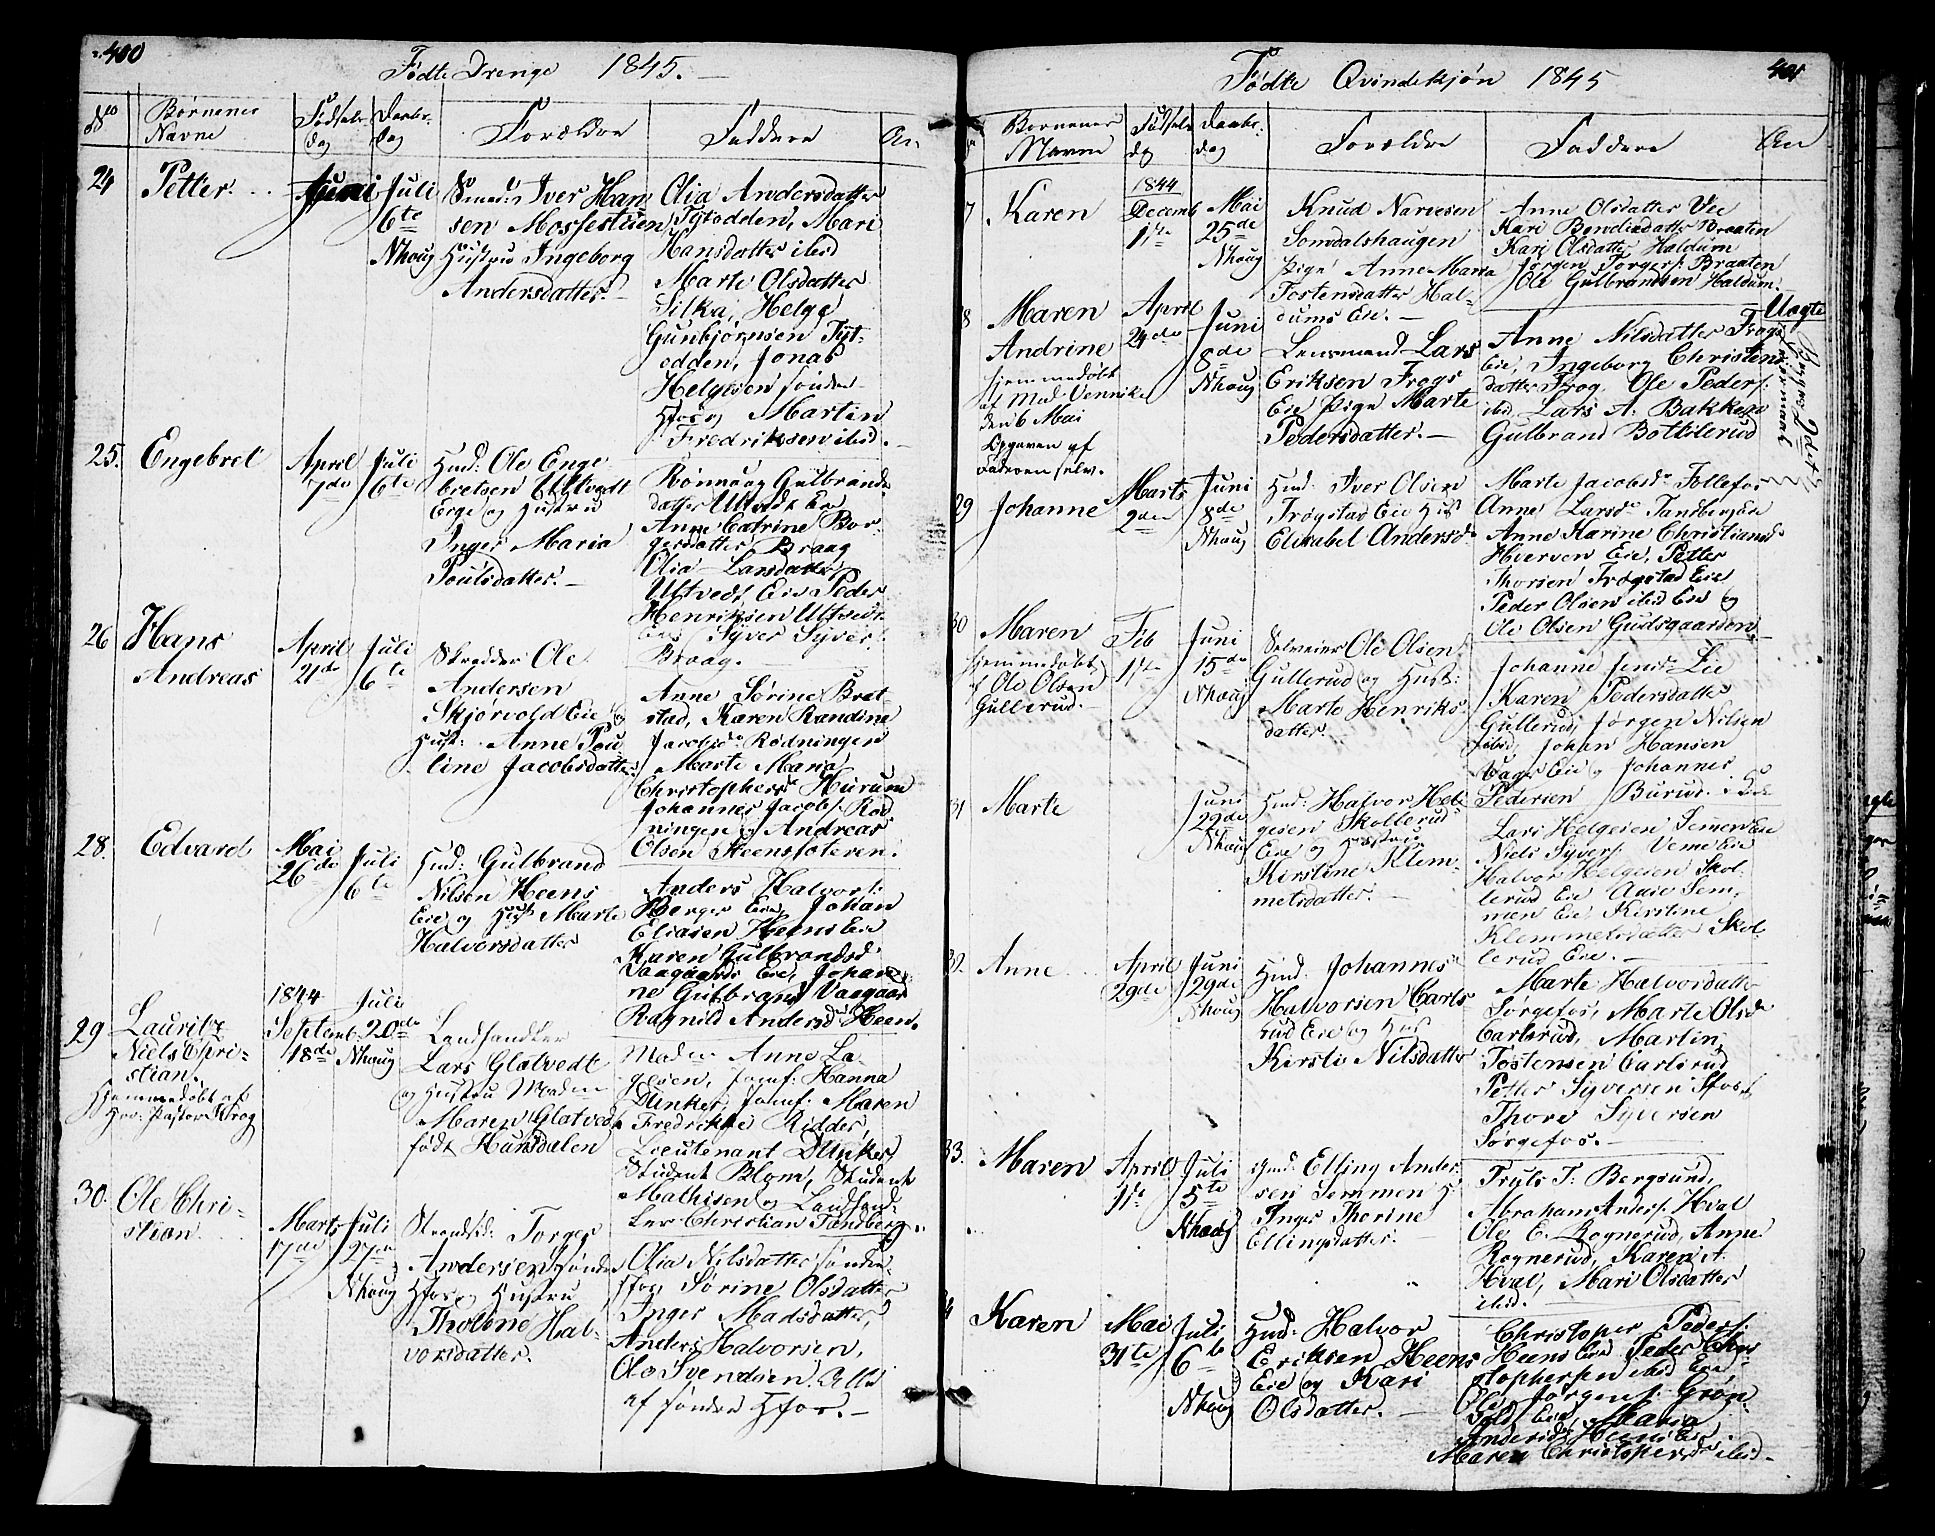 400
Fødte Drenge 1845.
Børnenes
Navne
Fødsels
dag
Daabs
dag
Forældre
Faddere
An.
24
Petter.
Juni
Juli
6te
Nhoug
Smed: Iver Han
sen Mosfestuen
Hustru Ingeborg
Andersdatter.
Olia Andersdatter
Tytodden, Mari
Hansdatter ibid
Marte Olsdatter
Silka, Helge
Gunbjørnsen Tyt-
odden, Jonas
Helgesen søndre
Hfos og Martin
Fredriksen ibid.
25.
Engebret
April
7de
Juli
6te
Hmd: Ole Enge
bretsen Ultvedt
Eie og Hustru
Inger Maria
Poulsdatter.
Rønnaug Gulbrands
datter Ultvedt Eie
Anne Catrine Bor-
gersdatter Braag
Olia Larsdatter
Ultvedt Eie Peder
Henriksen Ultvedt
Eie, Syver Syvers:
Braag.
26
Hans
Andreas
April
21de
Juli
6te
Skrædder Ole
Andersen
Skjørvold Eie og
Hust: Anne Pou
line Jacobsdatter
Anne Sørine Brat-
stad, Karen Randine
Jacobsd. Rødningen
Marte Maria
Christophersd Hurum
Johannes Jacobs: Rød
ningen og Andreas
Olsen Steensfoteren.
28.
Edvard
Mai
26de
Juli
6te
Hmd: Gulbrand
Nilsen Heens
Eie og Hust Marte
Halvorsdatter
Anders Halvors:
Berger Eie, Johan
Eliasen Heens Eie
Karen Gulbrandsd.
Vaagaards Eie, Johan
ne Gulbrans Vaagaar
Ragnild Andersd Heen.
29
Lauritz
Niels Chri-
stian.
Hjemmedøbt af
Hr: Pastor Krog
1844
Septemb.
18de
Juli
20de
Nhoug
Landhandler
Lars Glatvedt
og Hustru Madme
Maren Glatved
født Hansdalen
Madme Anne La-
gesen, Jomf: Hanna
Dunker, Jomf: Maren
Fredrikke Ridder,
Lieutenant Dunker
Student Blom, Student
Mathisen og Landhand-
ler Christian Tandberg.
30.
Ole Chri-
stian
Marts
17de
Juli
27de
Nhoug
Strandsid: Torger
Andersen søndre
Hfos og Hustru
Tholene Hal-
vorsdatter.
Olia Nilsdatter søndre
Hfos, Sørine Olsdatter
Inger Madsdatter,
Anders Halvorsen,
Ole Svendsen. Alle
af søndre Hfos.
401
Fødte Qvindekjøn 1845
Børnenes
Navne
Fødsels
dg
Daabs.
dag
Forældre
Faddere
An
7
Karen
1844
Decemb
17de
Mai
25de
Nhoug
Knud Narvesen
Somdalshaugen
Pige Anne Maria
Tostensdatter Hal-
dums Eie.
Anne Olsdatter Vee
Kari Bendixdatter Braaten
Kari Olsdatter Haldum
Jørgen Torgers: Braaten
Ole Gulbrandsen Haldum.
Uægte
8
Maren
Andrine
hjemmedøbt
af Mad. Vennike
den 6 Mai
Opgaven af
Faderen selv.
April
24de
Juni
8de
Nhoug
Lensmand Lars
Eriksen Frogs
Eie Pige Marte
Pedersdatter.
Anne Nilsdatter Frogs
Eie, Ingeborg Christens
datter Frog. Ole Peders:
ibid, Lars A. Bakken
Gulbrand Bottilerud
29
Johanne
Marts
2den
Juni
8de
Nhoug
Hmd: Iver Olsen
Frøgstad Eie Hus
Elisabet Andersd.
Marte Jacobsd. Follefos
Anne Larsd. Tandberg Eie
Anne Karine Christiansd.
Hverven Eie, Petter
Thorsen Frøgstad Eie
Peder Olsen ibid Eie og
Ole Olsen Gudsgaarden.
30
Maren
hjemmedøbt
af Ole Olsen
Gullerud.
Feb
17de
Juni
15de
Nhoug
Selveier Ole Olsen
Gullerud og Hust:
Marte Henriks-
datter.
Johanne Jensd. Lie
Karen Pedersdatter
Gullerud, Jørgen Nilsen
ibid, Johan Hansen
Vager Eie og Johannes
Pedersen Burud: Eie
31
Marte
Juni
29de
Nhoug
Hmd: Halvor Hel
gesen Skollerud
Eie og Hustru
Kirstine Klem-
metsdatter.
Lars Helgesen Semen Eie
Niels Syvers: Veme Eie
Halvor Helgesen Skol-
lerud Eie Anne Sem-
men Eie, Kirstine
Klemmetsdatter Skol-
lerud Eie.
32.
Anne
April
29de
Juni
29de
Nhoug
Hmd. Johannes
Halvorsen Carls
rud Eie og Hus
Kirsti Nilsdatter
Marte Halvorsdatter
Sørgefos, Marte Olsd
Carlsrud, Martin
Tostensen Carlsrud
Petter Syversen Hfos
Thore Syversen
Sørgefos.
33.
Maren
April
11te
Juli
5te
Nhoug
Hmd: Elling Ander
sen Semmen H
Inger Thorine
Ellingsdatter.
Truls T: Bergsund,
Abraham Anders: Hval
Ole E. Rognerud, Anne
Rognerud, Karen A.
Hval, Mari Olsdatter
ibid.
Karen
Mai
31te
Juli
6te
Nhoug
Hmd: Halvor
Eriksen Heens
Eie og Kari
Olsdatter.
Christoper Peders:
Heens Eie Peder Chri
stophersen ibid Eie
Ole Jørgens: Grøn-
vold Eie, Maria
Andersd. Heens Eie
Maren Christopersd. ibid.